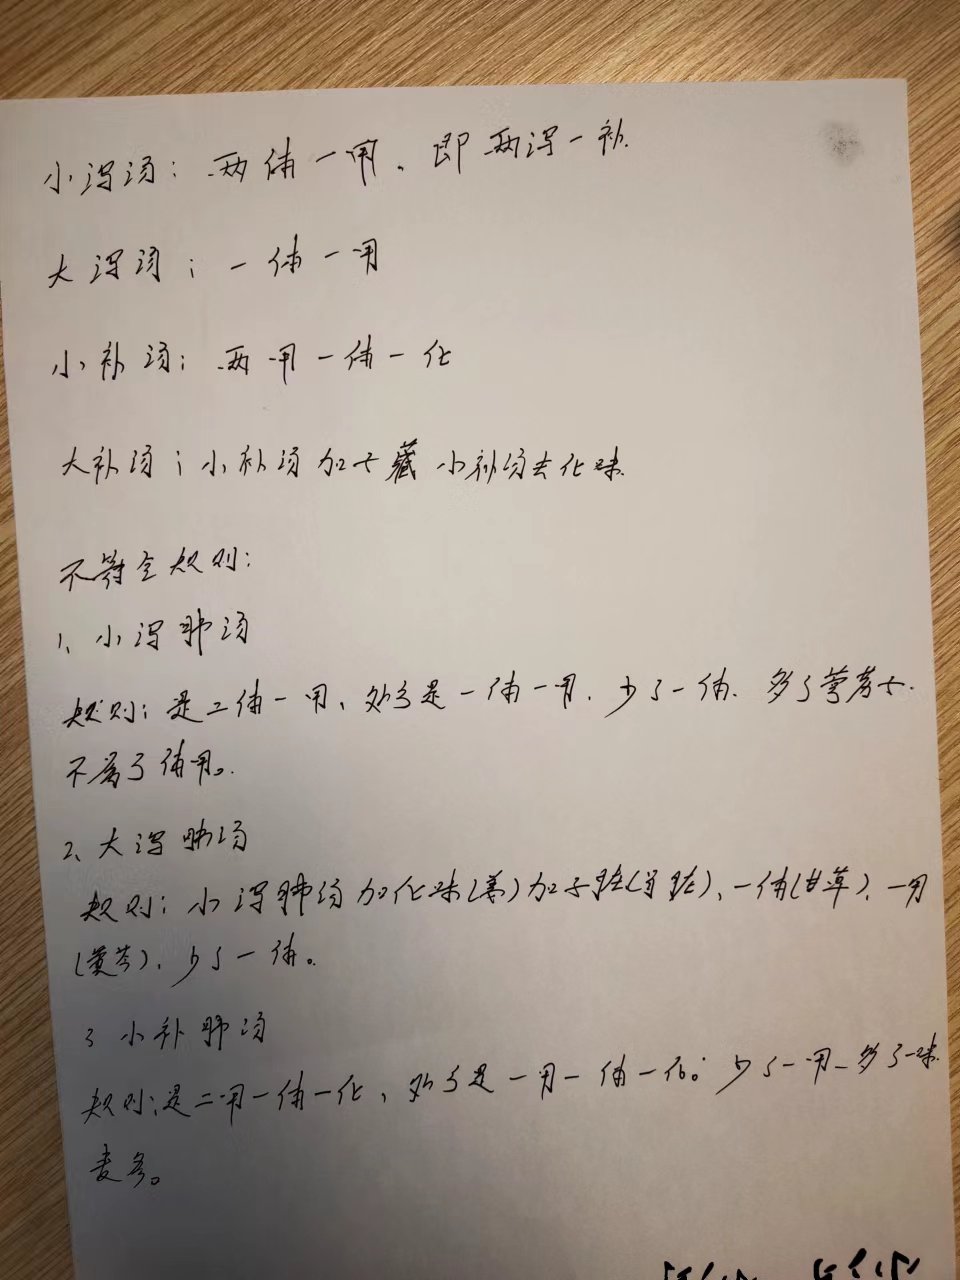 小泻汤：两体一用，即两泻一补.
大泻汤：一体一用
小补汤：两用一体一化
大补汤：小补汤加子藏小补汤去化味.
不符合规则：
1、小泻肺汤
规则：是二体一用、处方是一体一用、少了一体、多了葶苈子.
不属于体用。
2、大泻肺汤
规则：小泻肺汤加化味(姜)加子脏(肾脏)、一体(甘草)、一用
(黄芩)、少了一体。
3 小补肺汤
规则：是二用一体一化，处方是一用一体一化。少了一用、多了一味
麦冬。